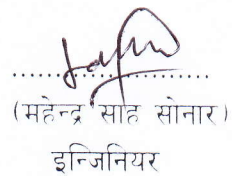 ....................
(महेन्द्र साह सोनार)
इन्जिनियर